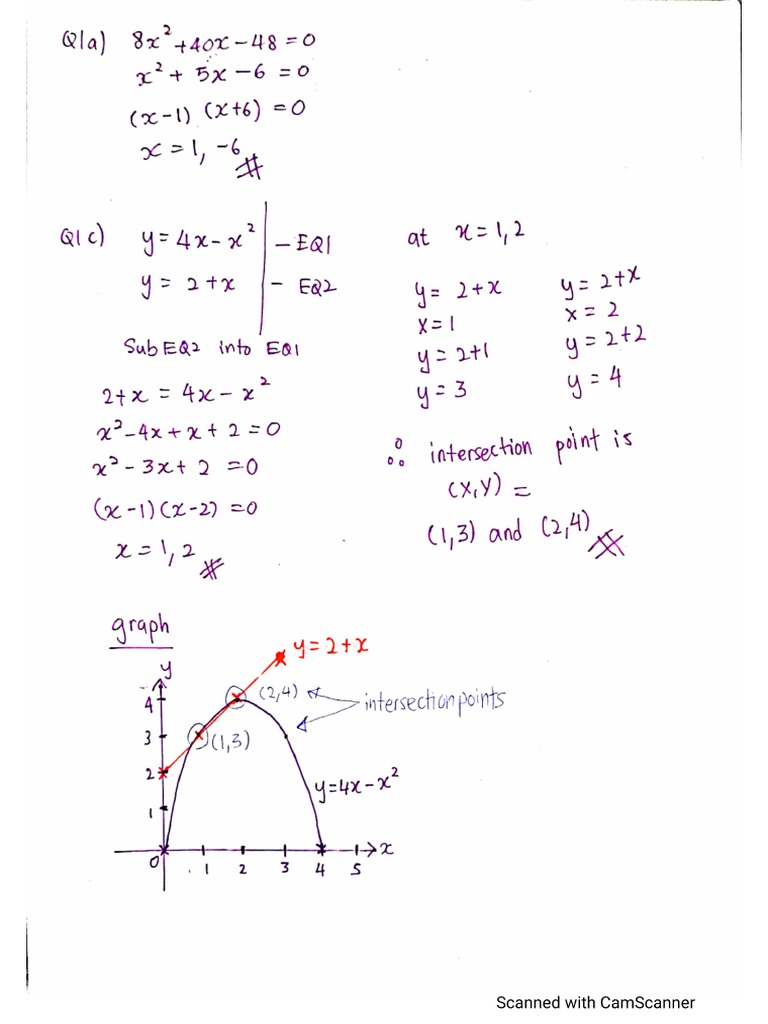 Q1a) 8x²+40x-48=0
x²+ 5x-6 =0
(x-1) (x+6) =0
x =1, -6
Q1c) y=4x-x² - EQ1
y= 2+x - EQ2
Sub EQ2 into EQ1
2+x = 4x-x²
x²-4x+x+2=0
x²-3x+2 =0
(x-1)(x-2)=0
x=1,2
at x=1,2
y= 2+x
x=1
y=2+1
y=3
y=2+x
x=2
y=2+2
y=4
∴ intersection point is
(x,y) =
(1,3) and (2,4)
graph
y=2+x
y
4
(2,4)
intersection points
3
(1,3)
2
y=4x-x²
1
0 1 2 3 4 5 x
Scanned with CamScanner